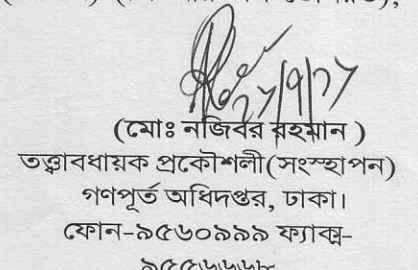 ২৭/৭/১৭
(মোঃ নজিবর রহমান )
তত্ত্বাবধায়ক প্রকৌশলী(সংস্হাপন)
গণপূর্ত অধিদপ্তর, ঢাকা।
ফোন-৯৫৬০৯৯৯ ফ্যাক্স-